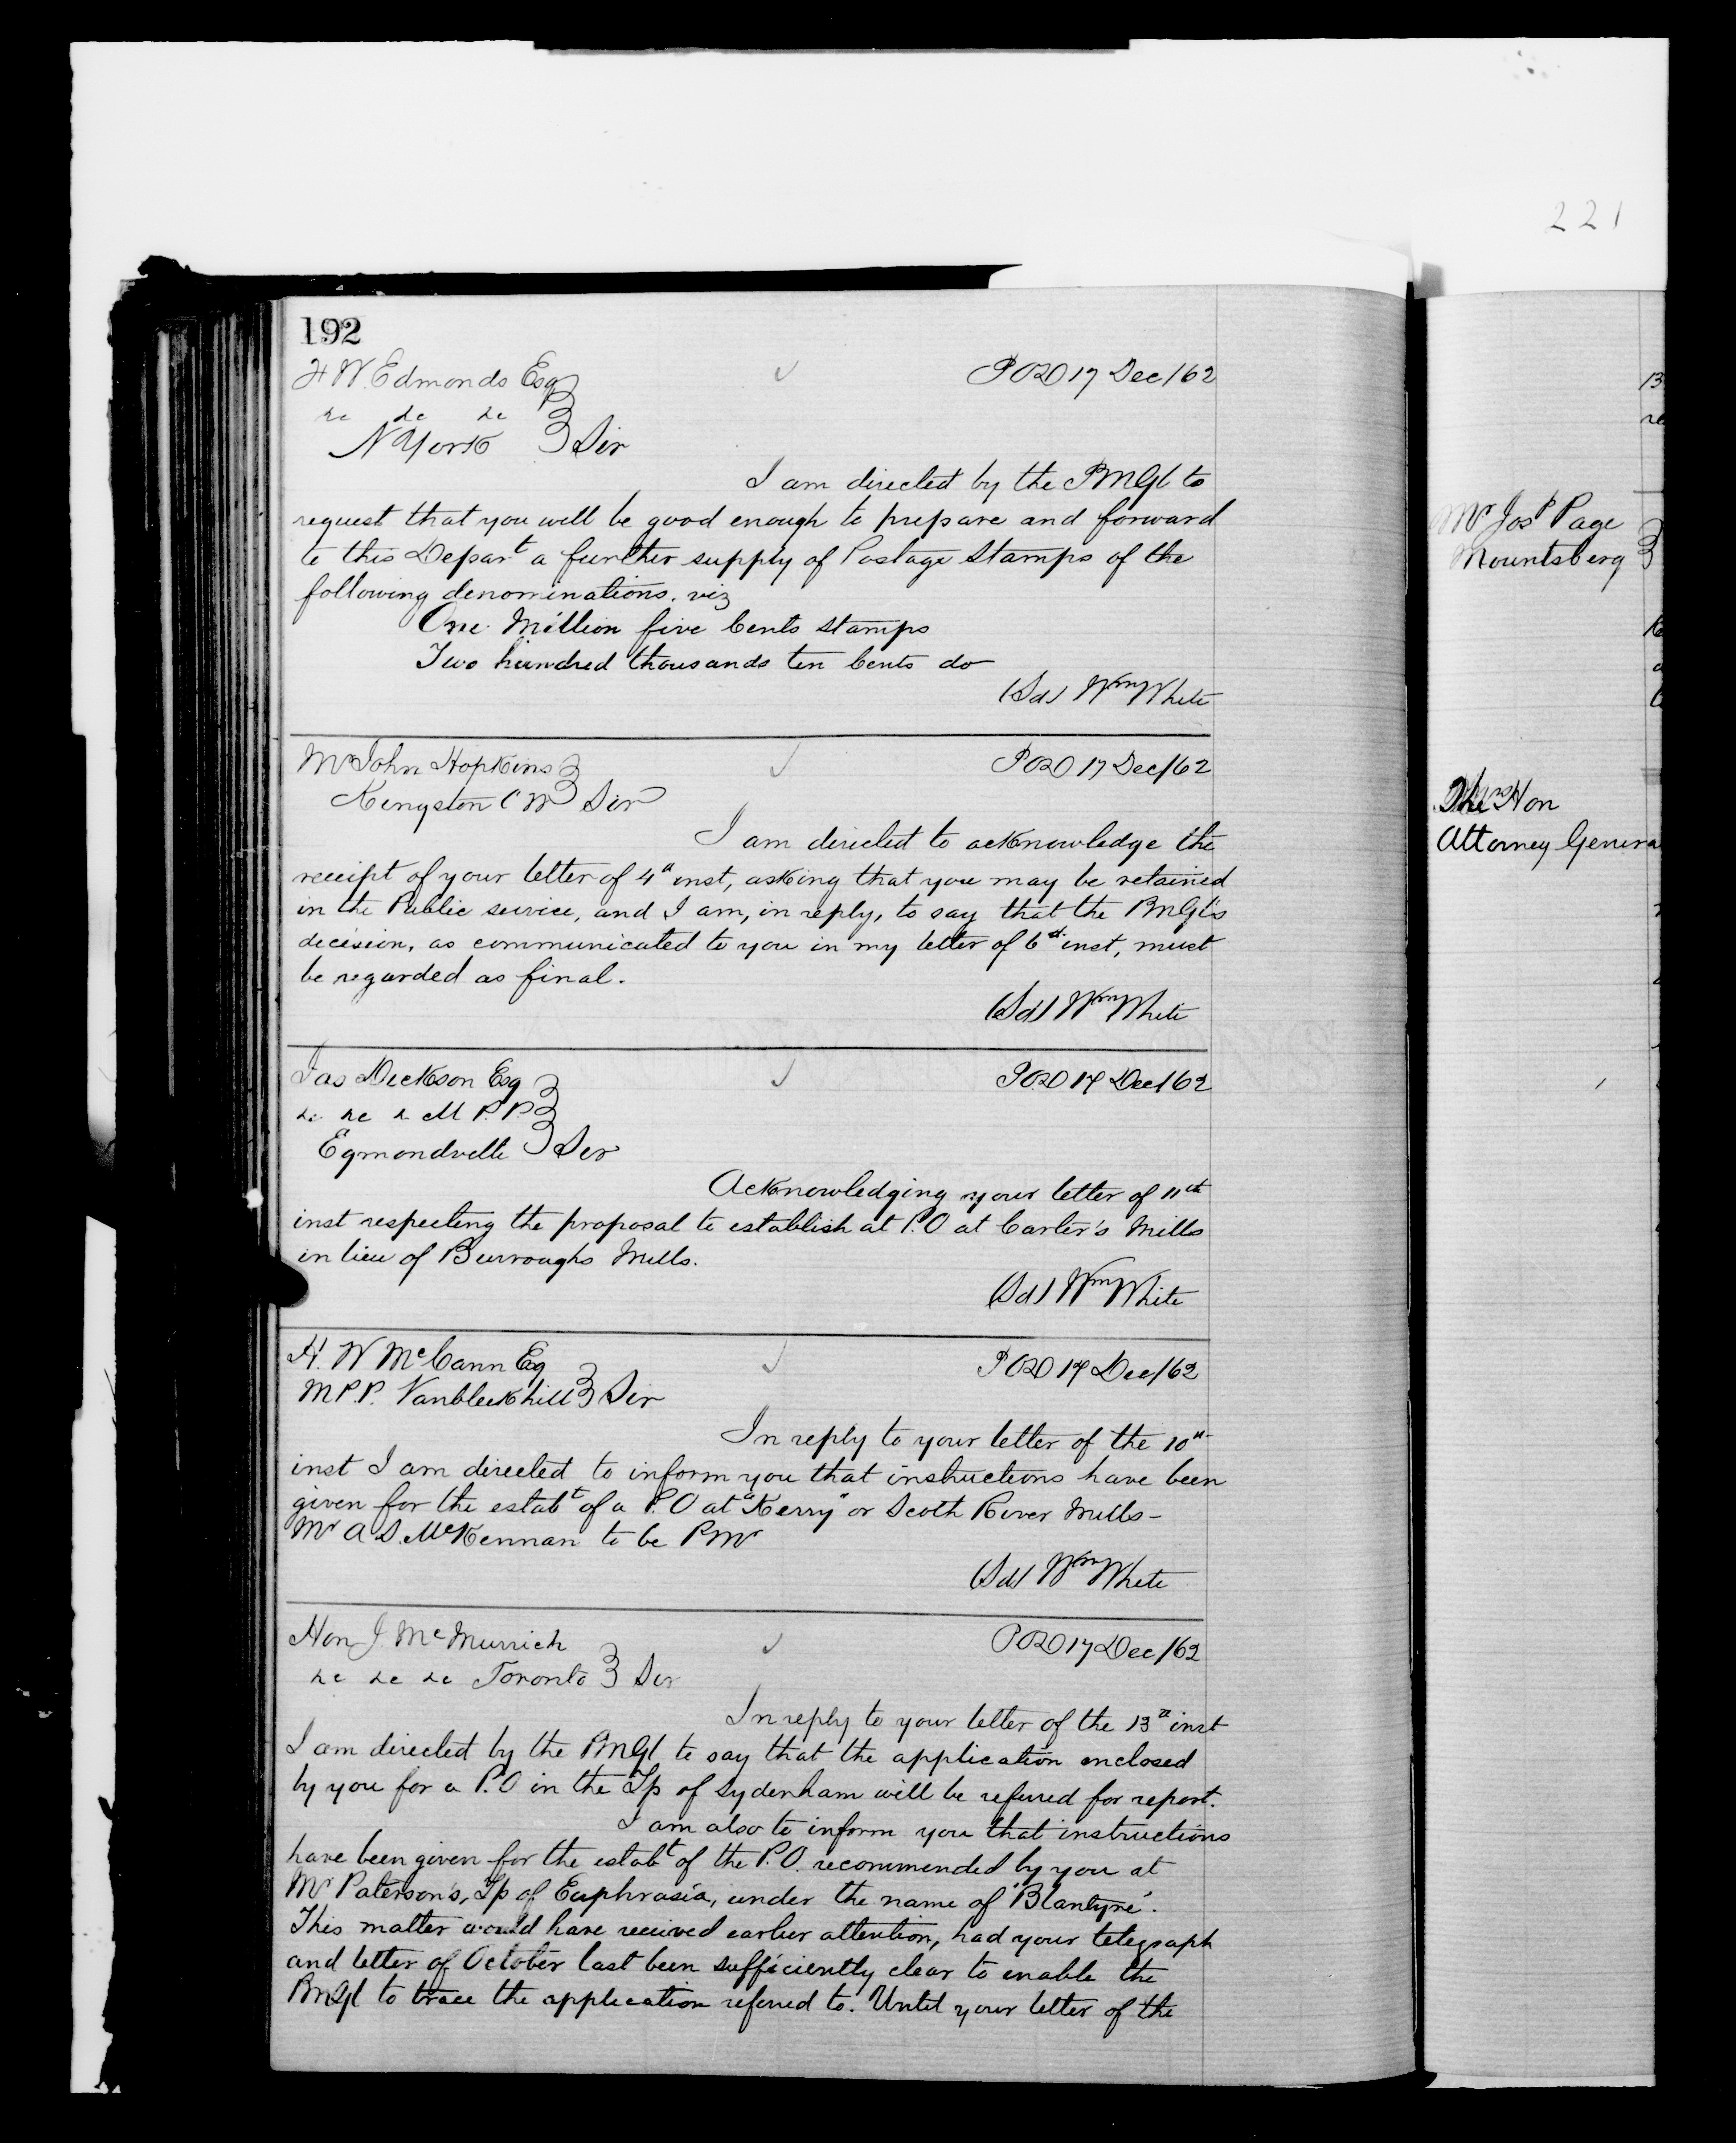 221
192
F W. Edmonds Esq POD 17 Dec/62
&c &c &c
N York Sir
I am directed by the PMGl to
request that you will be good enough to prepare and forward
to this Depart a further supply of Postage Stamps of the
following denominations. viz
One Million five Cents stamps
Two hundred thousands ten Cents do
(Sd) Wm White
Mr John Hopkins POD 17 Dec/62
Kingston C W Sir
I am directed to acknowledge the
receipt of your letter of 4th inst, asking that you may be retained
in the Public service, and I am, in reply, to say that the PMGl's
decision, as communicated to you in my letter of 6th inst, must
be regarded as final.
(Sd) Wm White
Jas Dickson Esq POD 17 Dec/62
&c &c & M P.P.
Egmondville Sir
Acknowledging your letter of 11th
inst respecting the proposal to establish at P.O at Carter's Mills
in lieu of Burroughs Mills.
(Sd) Wm White
H. W McCann Esq POD 17 Dec/62
M P.P. Vanbleekhill Sir
In reply to your letter of the 10th
inst I am directed to inform you that instructions have been
given for the estabt of a P.O at "Kerry" or Scoth River Mills -
Mr A S. McKennan to be PMr
(Sd) Wm White
Hon J. McMurrich POD 17 Dec/62
&c &c &c Toronto Sir
In reply to your letter of the 13th inst
I am directed by the PMGl to say that the application enclosed
by you for a P.O in the Tp of Sydenham will be referred for report.
I am also to inform you that instructions
have been given for the estabt of the P.O. recommended by you at
Mr Paterson's, Tp of Euphrasia, under the name of 'Blantyre'.
This matter would have received earlier attention, had your telegraph
and letter of October last been sufficiently clear to enable the
PMGl to trace the application referred to. Until your letter of the
Mr Josh Page
Mountsberg
The Hon
Attorney Genera